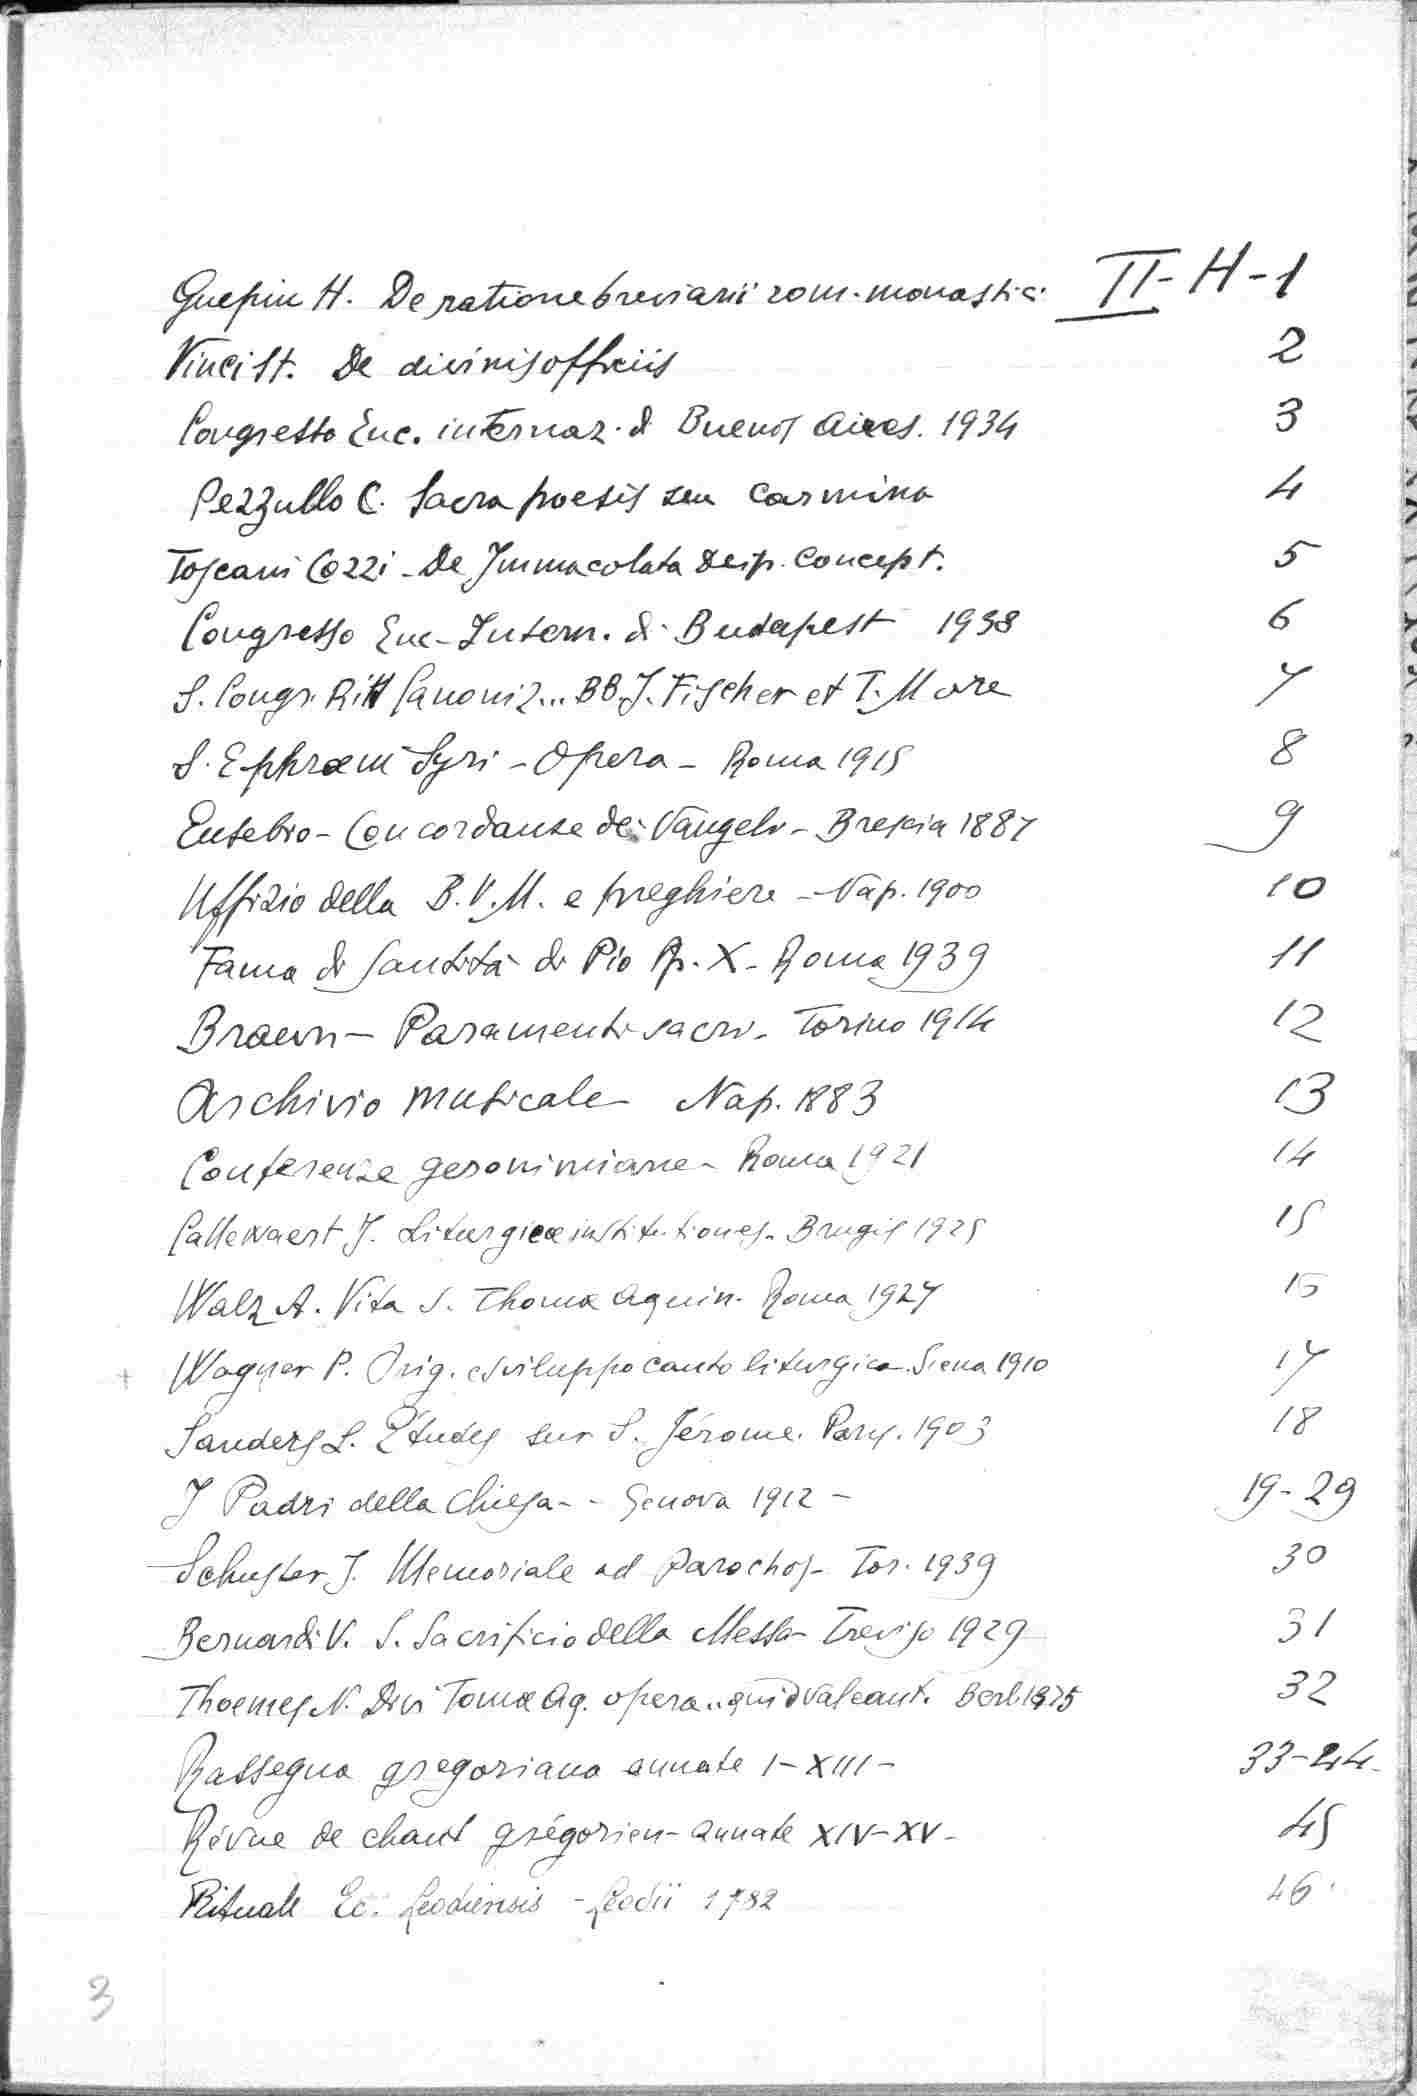 Guepin H. De ratione breviarii rom. monastici II-H-1
Vinci St. De divinis officiis 2
Congresso Euc. internaz. di Buenos Aires. 1934 3
Pezzullo C. Sacra poesis seu carmina 4
Toscani Cozzi - De Immacolata Deip. Concept. 5
Congresso Euc- Intern. di Budapest 1938 6
S. Congr. Ritt Canoniz... BB. J. Fischer et T. More 7
S. Ephraem Syri - Opera - Roma 1915 8
Eusebio - Concordanze dei Vangeli - Brescia 1887 9
Uffizio della B.V.M. e preghiere - Nap. 1900 10
Fama di Santità di Pio Pp. X - Roma 1939 11
Braun - Paramenti sacri - Torino 1914 12
Archivio musicale Nap. 1883 13
Conferenze geronimiane - Roma 1921 14
Callewaert J. Liturgicae institutiones - Brugis 1925 15
Walz A. Vita S. Thomae Aquin. Roma 1927 16
+ Wagner P. Orig. e sviluppo canto liturgico. Siena 1910 17
Sanders L. Études sur S. Jérome. Parys. 1903 18
I Padri della Chiesa - - Genova 1912 - 19-29
Schuster J. Memoriale ad Parochos - Tor. 1939 30
Bernardi V. S. Sacrificio della Messa - Treviso 1929 31
Thoemes N. Divi Tomae Aq. opera .. quid valeant. Berl. 32
Rassegna gregoriana annate I-XIII - 33-44
Révue de chant grégorien - annate XIV-XV - 45
Rituale Ec. Leodiensis - Leodii 1782 46
3